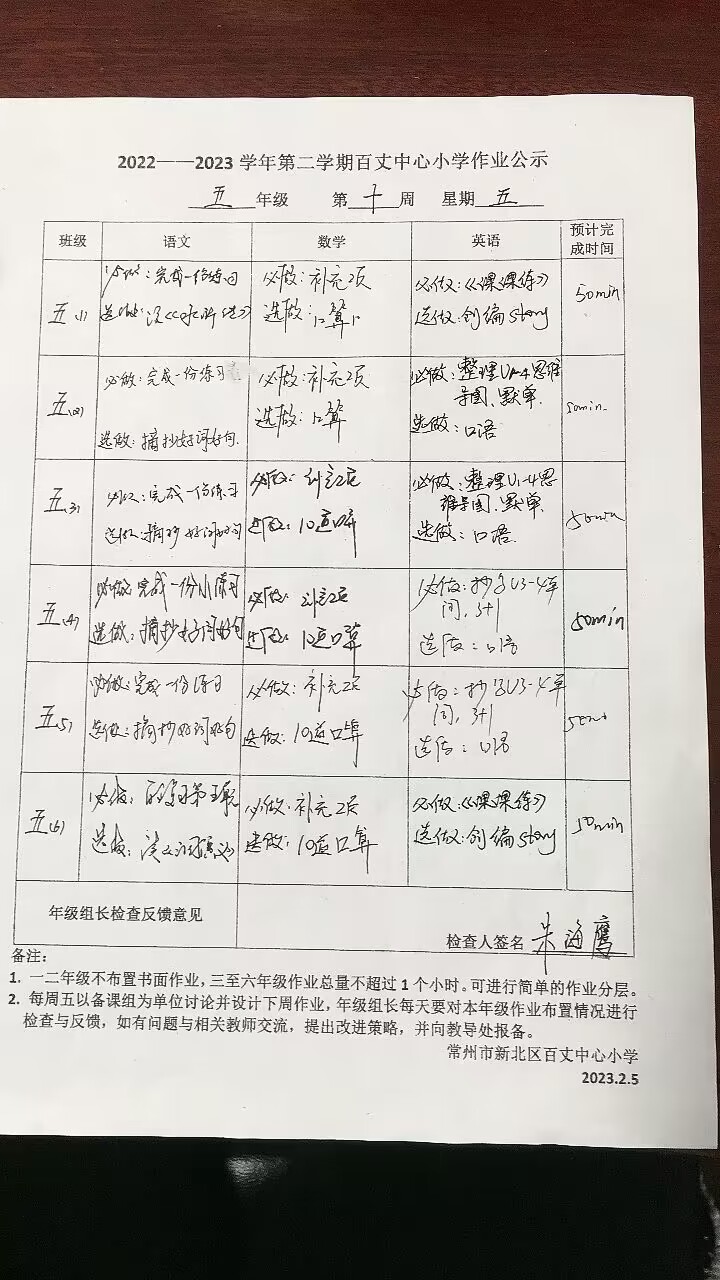 2022——2023 学年第二学期百丈中心小学作业公示
五 年级 第 十 周 星期 五
班级 语文 数学 英语 预计完成时间
五(1)
必做：完成一份练习
选做：读《水浒传》
必做：补充2页
选做：口算
必做：《课课练》
选做：创编story
50min
五(2)
必做：完成一份练习
选做：摘抄好词好句.
必做：补充2页
选做：口算
必做：整理U1-4思维
导图、默单.
选做：口语
50min.
五(3)
必做：完成一份练习
选做：摘抄好词好句
必做：补充2页
选做：10道口算
必做：整理U1-4思
维导图、默单.
选做：口语.
50min
五(4)
必做：完成一份小练习
选做：摘抄好词好句
必做：补充2页
选做：10道口算
必做：抄写U3-4单
词，3+1
选做：口语
50min
五(5)
必做：完成一份练习
选做：摘抄好词好句
必做：补充2页
选做：10道口算
必做：抄写U3-4单
词，3+1
选做：口语
50min
五(6)
必做：
选做：
必做：补充2页
选做：10道口算
必做：《课课练》
选做：创编story
50min
年级组长检查反馈意见
检查人签名 朱海鹰
备注：
1. 一二年级不布置书面作业，三至六年级作业总量不超过 1 个小时。可进行简单的作业分层。
2. 每周五以备课组为单位讨论并设计下周作业，年级组长每天要对本年级作业布置情况进行
检查与反馈，如有问题与相关教师交流，提出改进策略，并向教导处报备。
常州市新北区百丈中心小学
2023.2.5